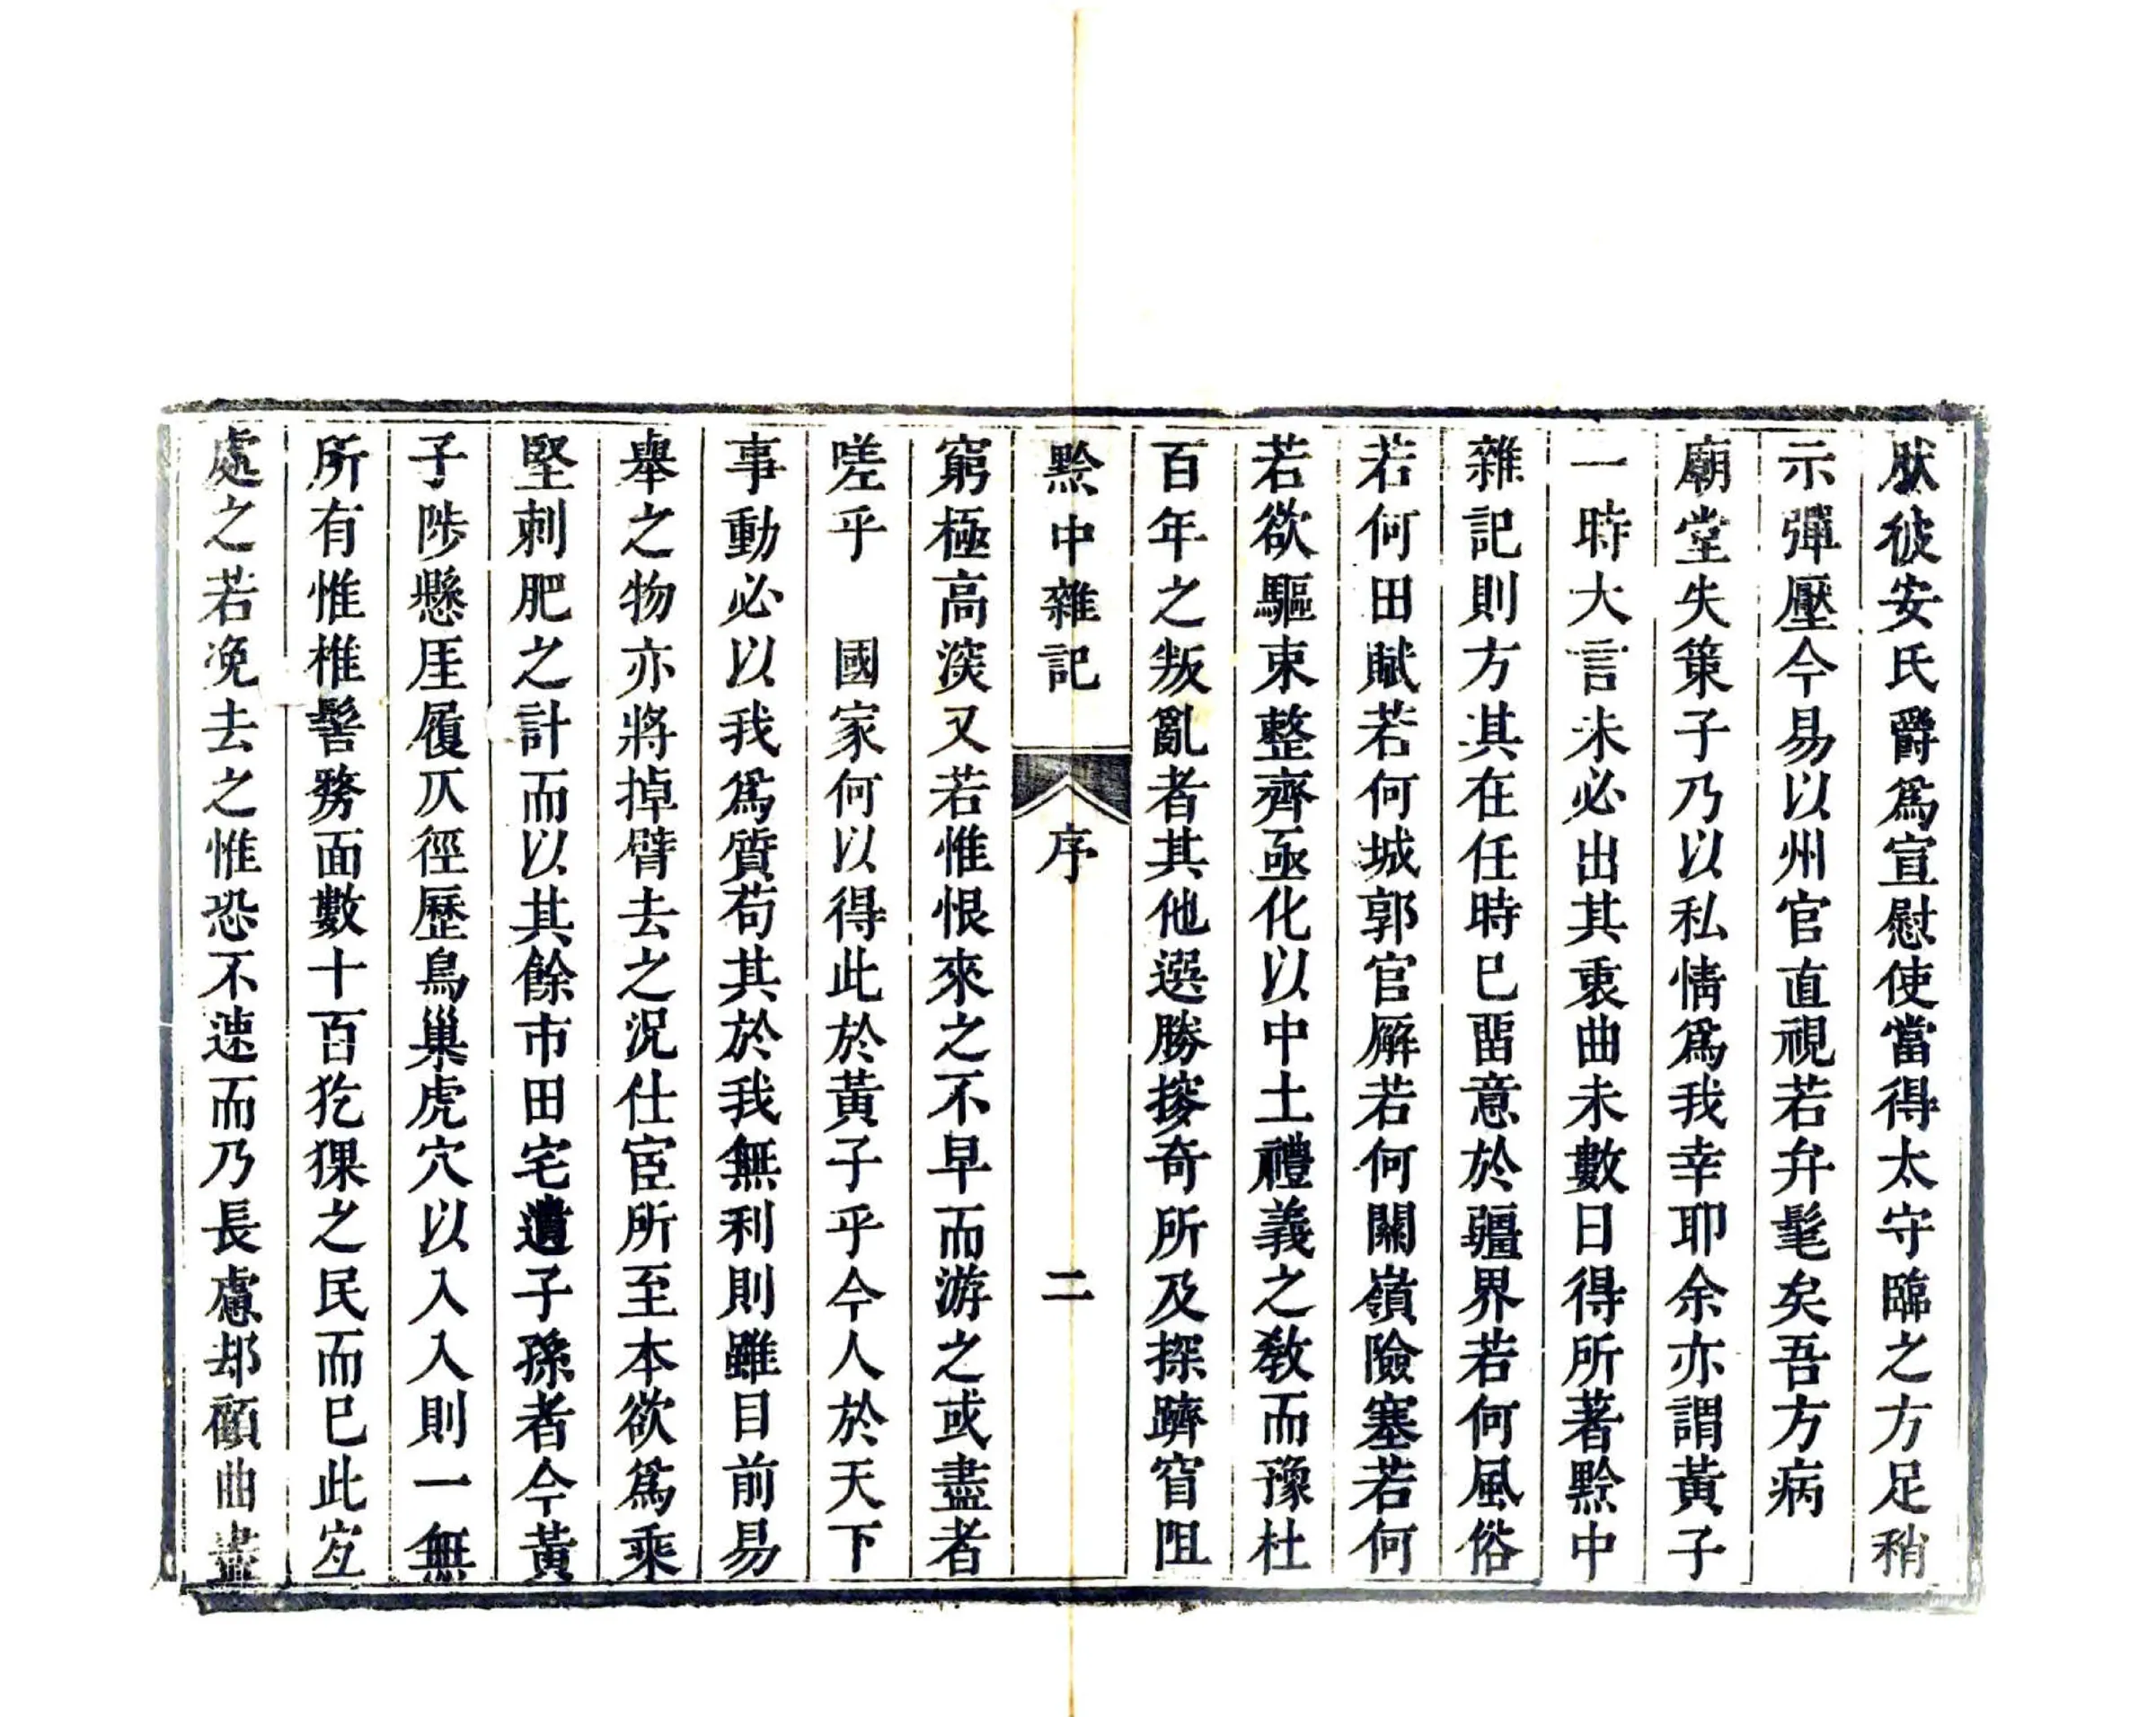 肰彼安氏爵爲宣慰使當得太守臨之方足稍
示彈壓今易以州官直視若弁髦矣吾方病
廟堂失策子乃以私情爲我幸耶余亦謂黃子
一時大言未必出其衷曲未數日得所著黔中
雜記則方其在任時已畱意於疆界若何風俗
若何田賦若何城郭官廨若何關嶺險塞若何
若欲驅束整齊亟化以中土禮義之敎而豫杜
百年之叛亂者其他選勝搜奇所及探躋窅阻
黔中雜記 序 二
窮極高深又若惟恨來之不早而游之或盡者
嗟乎 國家何以得此於黃子乎今人於天下
事動必以我爲質苟其於我無利則雖目前易
舉之物亦將掉臂去之況仕宦所至本欲爲乘
堅刺肥之計而以其餘市田宅遺子孫者今黃
子陟懸厓履仄徑歷鳥巢虎穴以入入則一無
所有惟椎髻剺面數十百犵猓之民而已此宐
處之若浼去之惟恐不速而乃長慮却顧曲盡